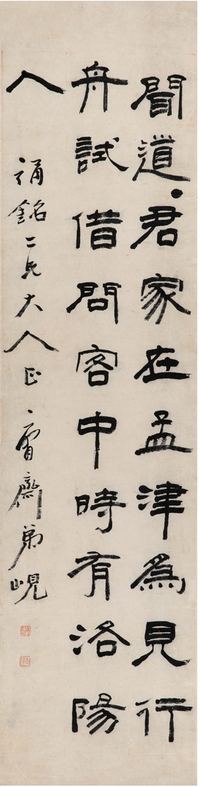 聞道君家在孟津爲見行
舟試借問客中時有洛陽
人
銘二兄大人正 庸齋弟峴